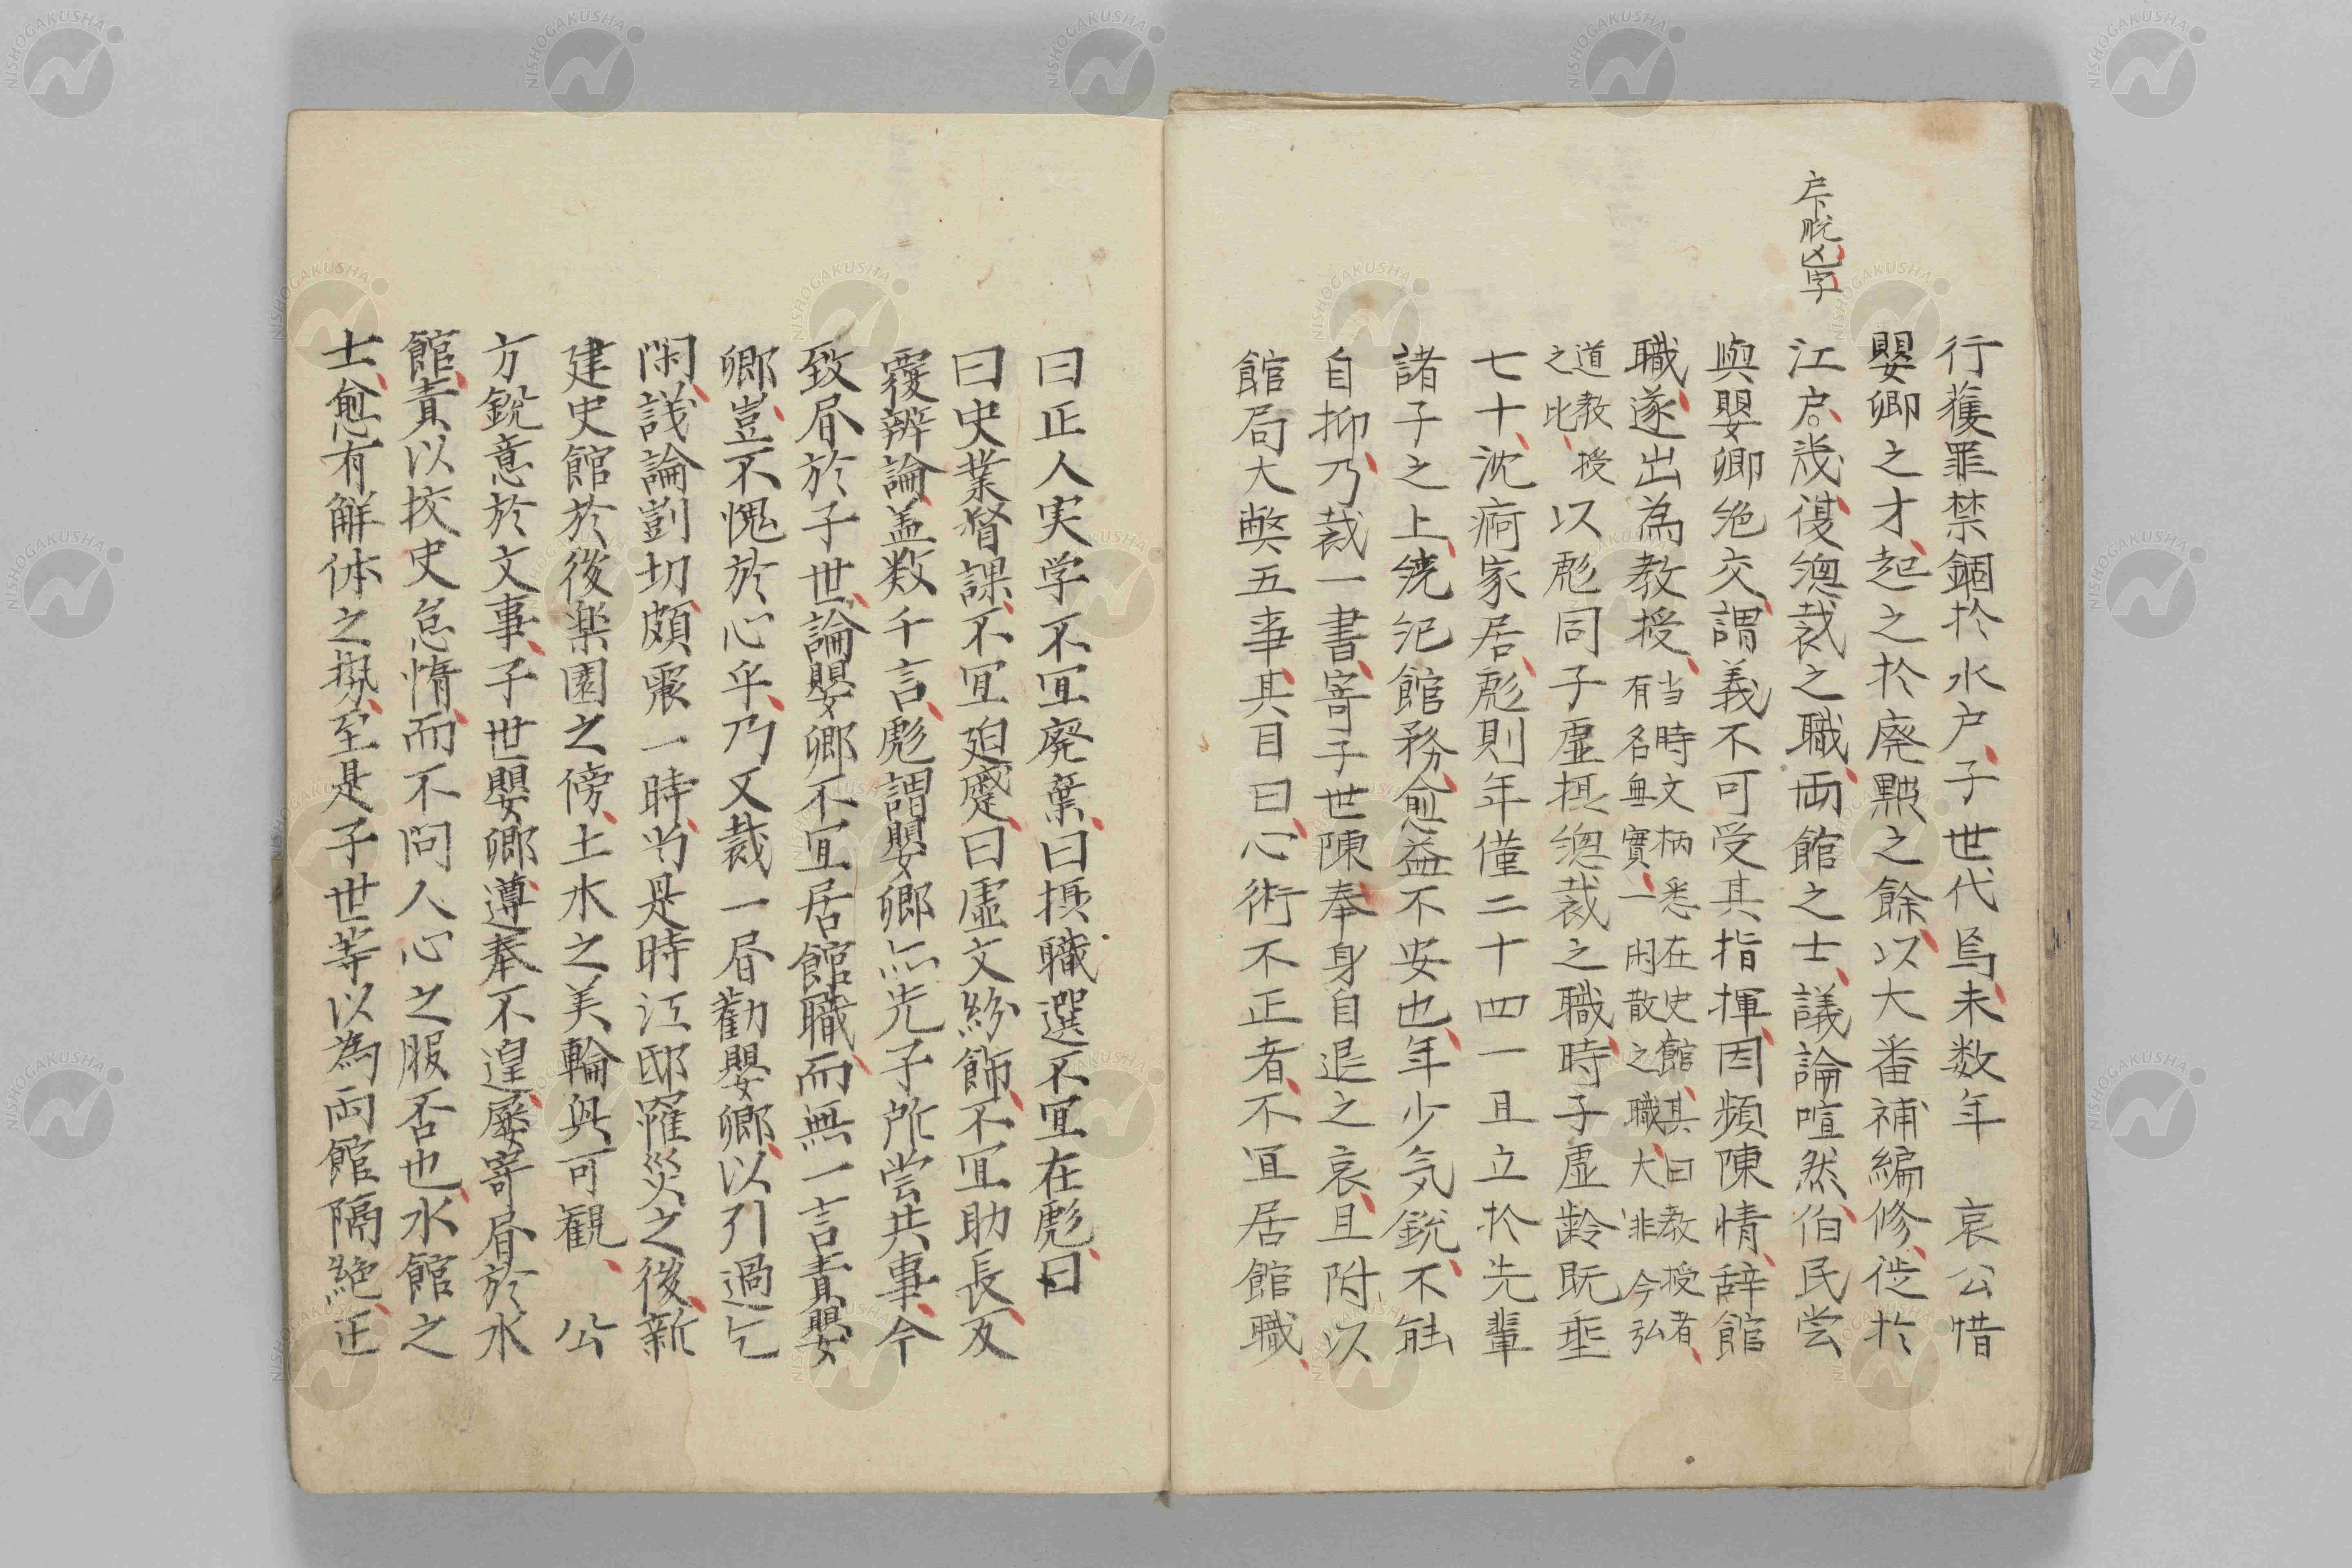 戸下脱凶字
行獲罪禁錮於水户、子世代焉、未数年 哀公惜
嬰卿之才、起之於廃黜之餘、以大番補編修、徙於
江户、幾復總裁之職、両館之士、議論喧然、伯民尝
與嬰卿絶交、謂義不可受其指揮、因頻陳情、辞館
職、遂出為教授、当時文柄悉在史館、其曰教授者、
有名無實、一閑散之職、大非今弘
道教授
之比、以彪同子虚摂總裁之職、時子虚齢既垂
七十、沈痾家居、彪則年僅二十四一旦立於先輩
諸子之上、統紀館務、愈益不安也、年少気鋭、不能
自抑、乃裁一書、寄子世陳奉身自退之哀、且附以
館局大弊五事、其目曰、心術不正者、不宜居館職、
曰正人実学不宜廃棄、曰摂職選不宜在彪、曰
曰史業督課、不宜廹蹙、曰虚文紛飾、不宜助長、反
覆辨論、盖数千言、彪謂嬰卿亦先子所尝共事、今
致書於子世、論嬰卿不宜居館職、而無一言責嬰
卿、豈不愧於心乎、乃又裁一書勸嬰卿、以引過乞
閑、議論剴切、頗震一時、当是時江邸罹災之後、新
建史館於後楽園之傍、土木之美輪奐可観、 公
方鋭意於文事、子世嬰卿遵奉不遑、屡寄書於水
館、責以挍史怠惰、而不問人心之服否也、水館之
士、愈有解体之勢、至是子世等以為両館隔絶、正